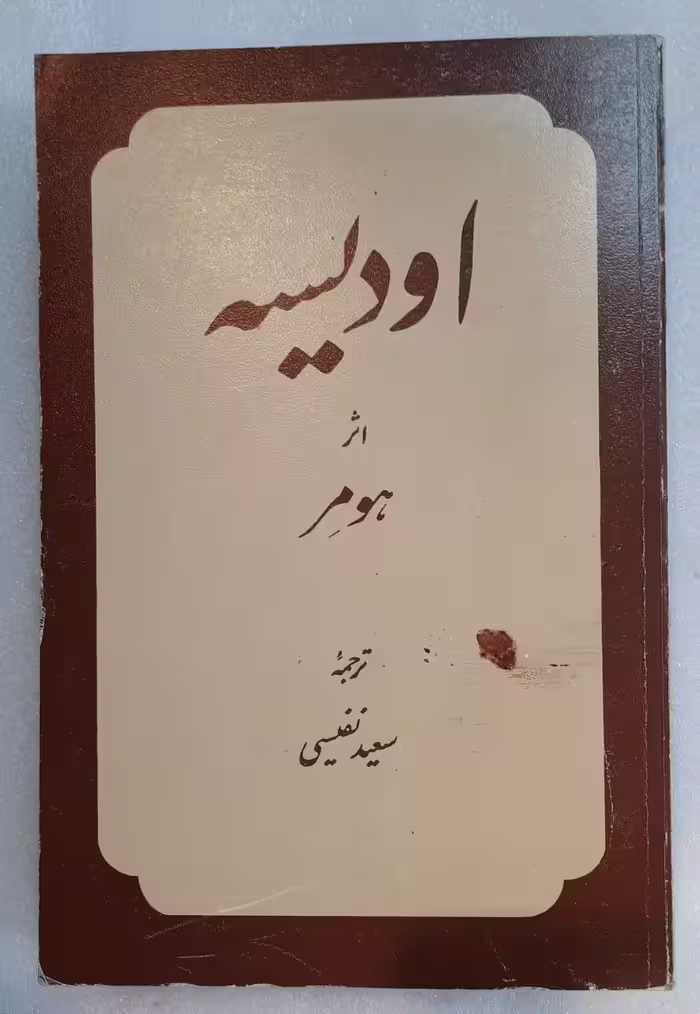 اودیسه
اثر
هومِر
ترجمهٔ
سعید نفیسی